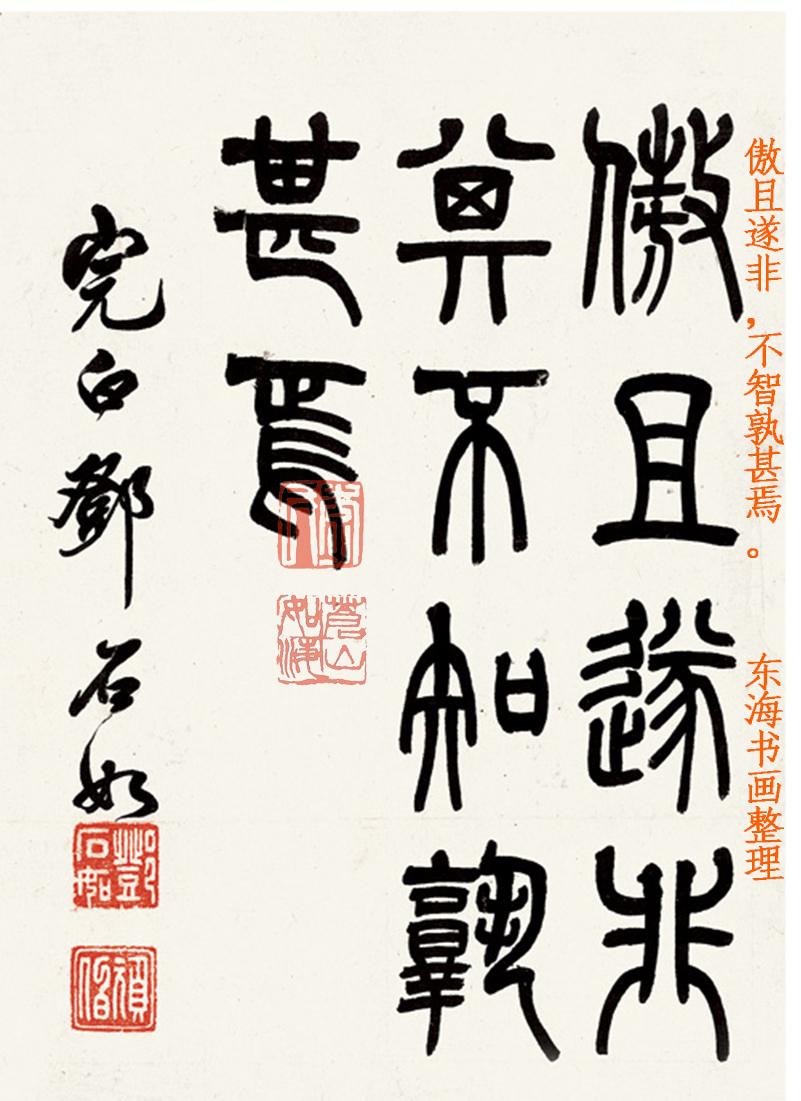 傲且遂非,不智孰甚焉。
东海书画整理
傲且遂非
其不知孰
甚焉
完白鄧石如
鄧石如
頑伯